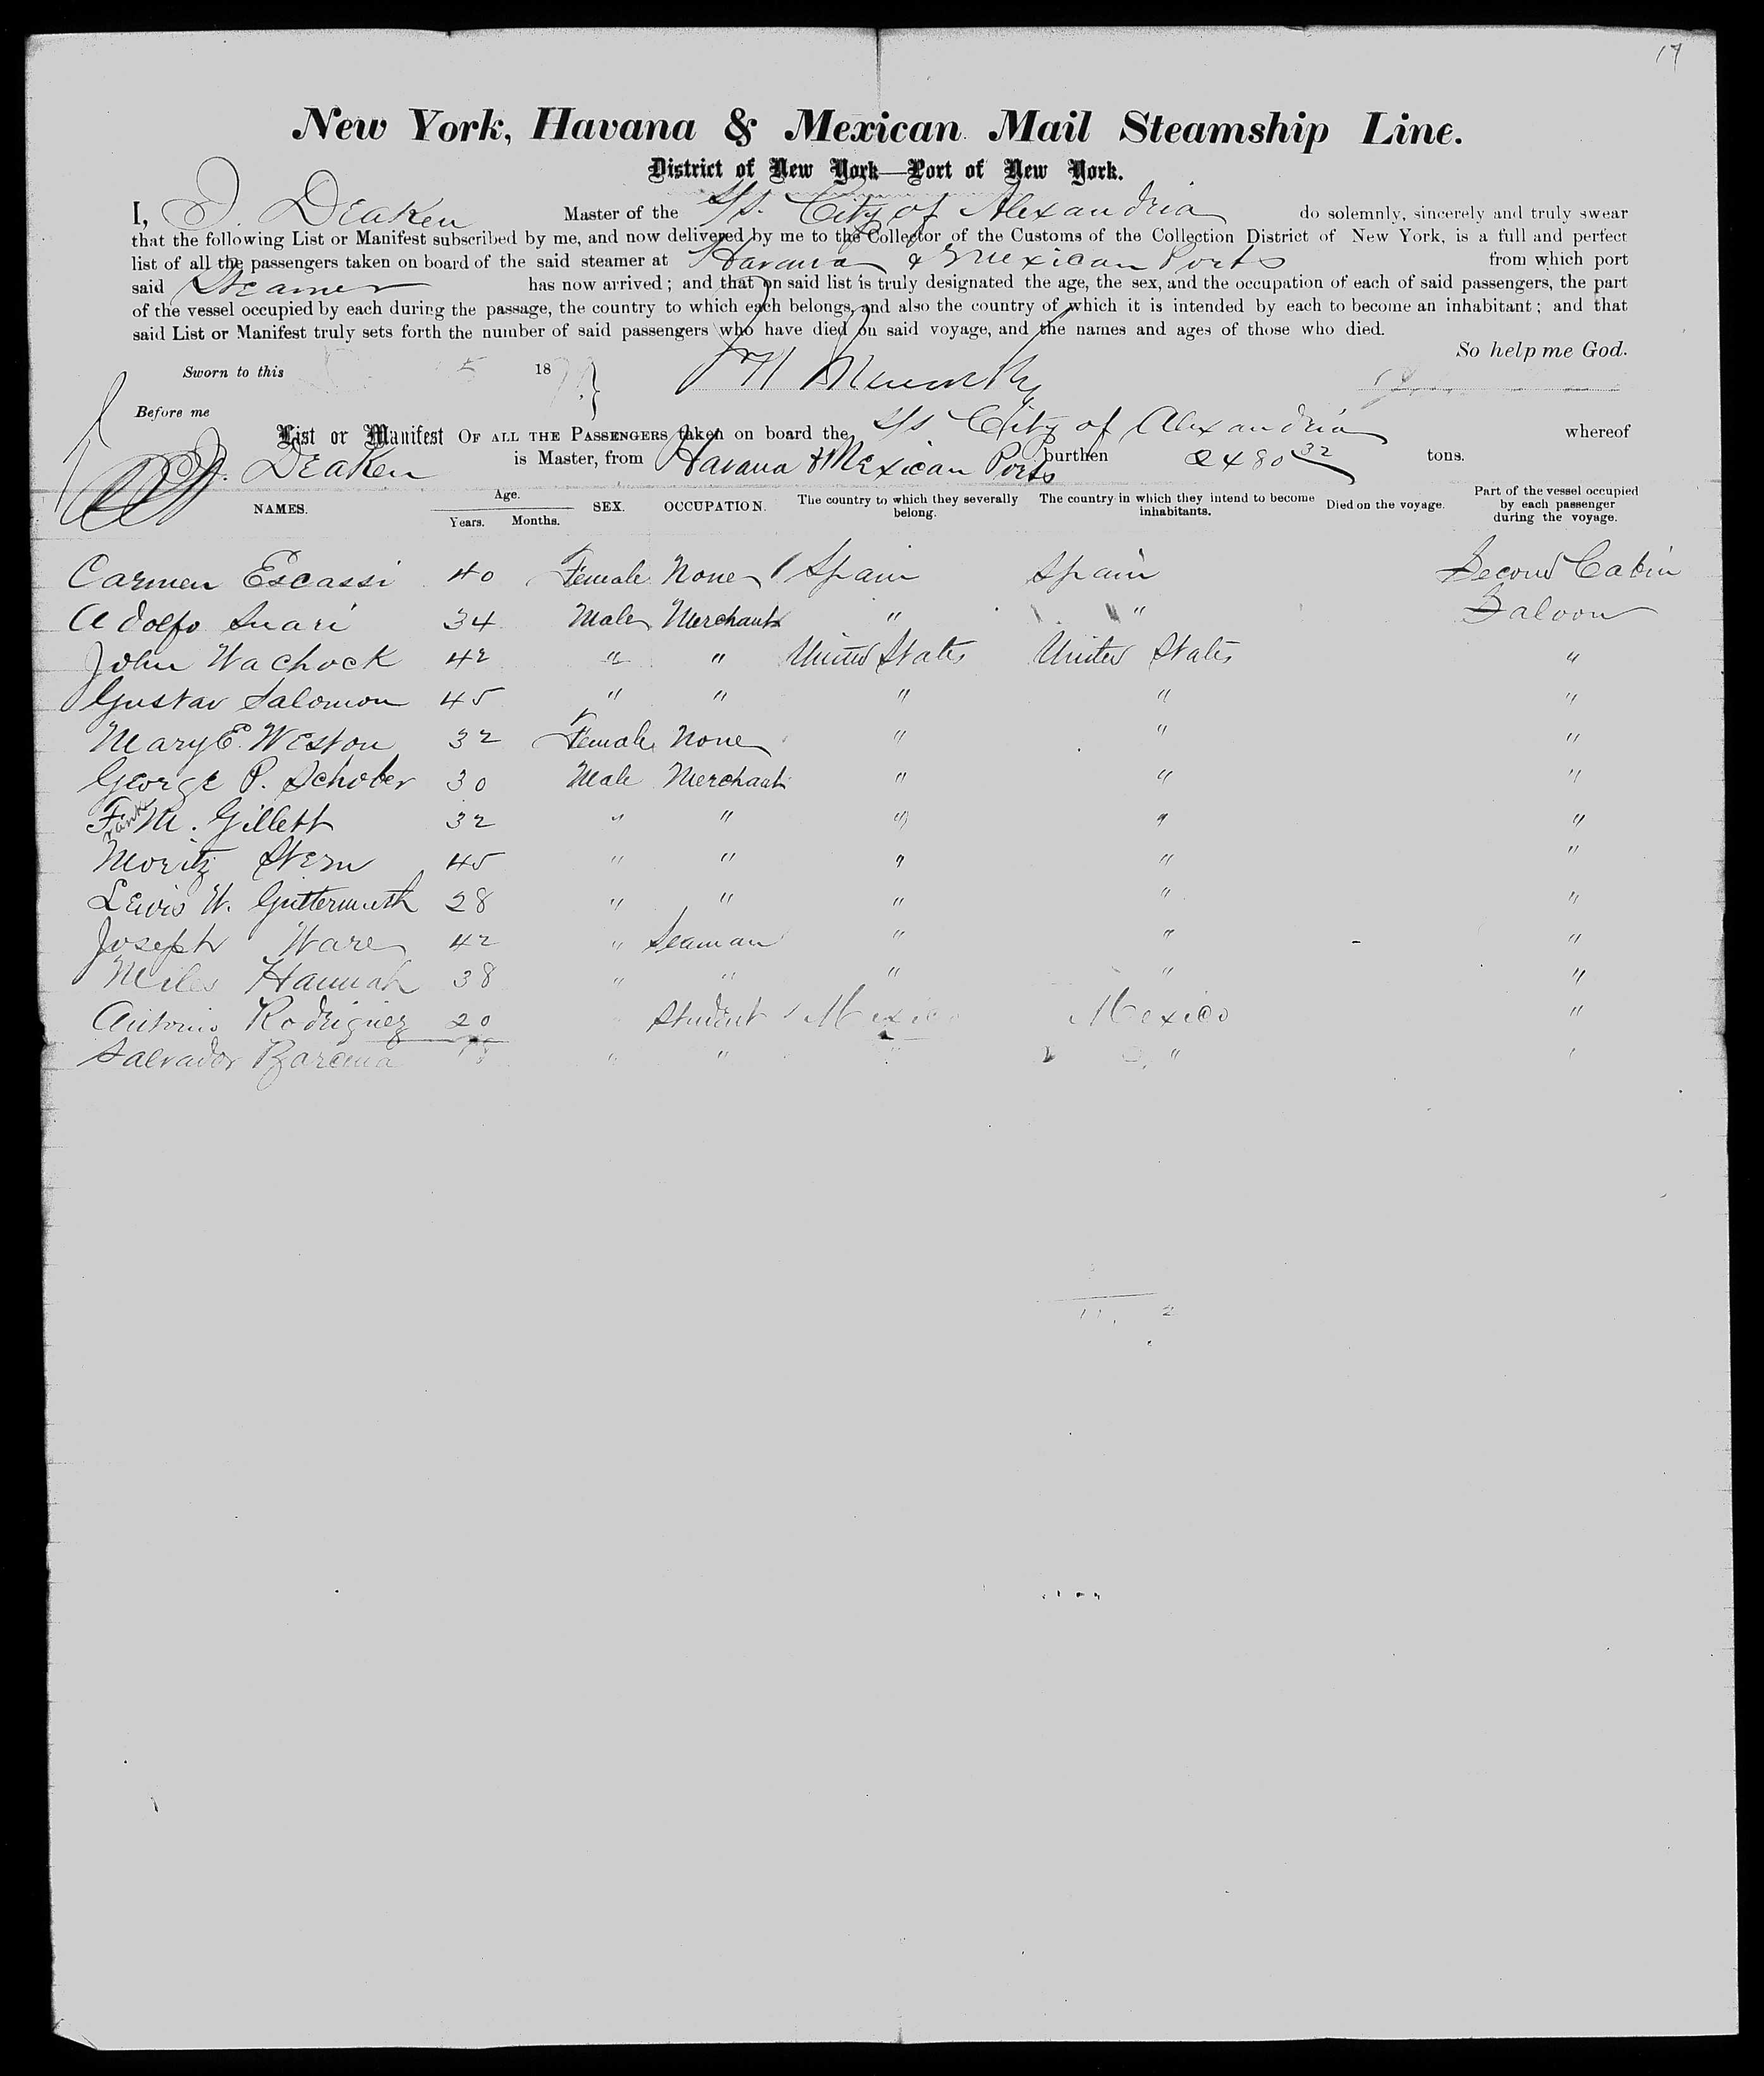 New York, Havana & Mexican Mail Steamship Line.
District of New York—Port of New York.
I, J. Deaken Master of the S/S. City of Alexandria do solemnly, sincerely and truly swear
that the following List or Manifest subscribed by me, and now delivered by me to the Collector of the Customs of the Collection District of New York, is a full and perfect
list of all the passengers taken on board of the said steamer at Havana & Mexican Ports from which port
said Steamer has now arrived; and that on said list is truly designated the age, the sex, and the occupation of each of said passengers, the part
of the vessel occupied by each during the passage, the country to which each belongs, and also the country of which it is intended by each to become an inhabitant; and that
said List or Manifest truly sets forth the number of said passengers who have died on said voyage, and the names and ages of those who died.
So help me God.
Sworn to this 5 18
Before me
List or Manifest OF ALL THE PASSENGERS taken on board the S/S City of Alexandria whereof
J. Deaken is Master, from Havana & Mexican Ports burthen 2480 32 tons.
NAMES. Age. Years. Months. SEX. OCCUPATION. The country to which they severally belong. The country in which they intend to become inhabitants. Died on the voyage. Part of the vessel occupied by each passenger during the voyage.
Carmen Escassi 40 Female None Spain Spain Second Cabin
Adolfo Suari 34 Male Merchant " " Saloon
John Wachock 42 " " United States United States "
Gustav Salomon 45 " " " " "
Mary E. Weston 32 Female None " " "
George P. Schober 30 Male Merchant " " "
Frank M. Gillett 32 " " " " "
Moritz Stern 45 " " " " "
Lewis W. Guttermuth 28 " " " " "
Joseph Ware 42 " Seaman " " "
Miles Hannah 38 " " " " "
Antonio Rodriguez 20 Student Mexico Mexico "
Salvador Barcena " " " "